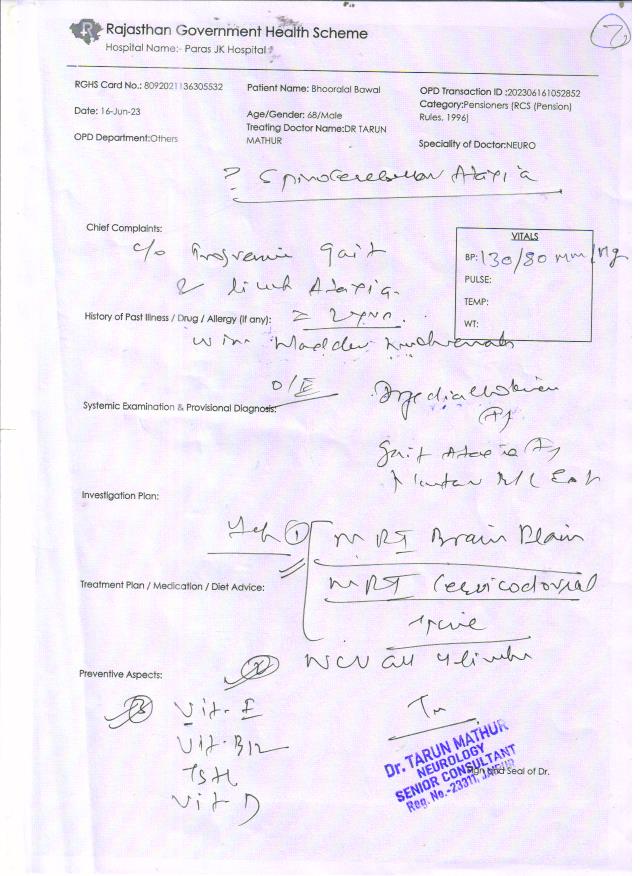 Rajasthan Government Health Scheme
Hospital Name:- Paras JK Hospital
7
RGHS Card No.: 8092021136305532
Patient Name: Bhooralal Bawal
OPD Transaction ID :202306161052852
Category:Pensioners (RCS (Pension) Rules, 1996)
Date: 16-Jun-23
Age/Gender: 68/Male
Treating Doctor Name:DR TARUN MATHUR
OPD Department:Others
Speciality of Doctor:NEURO
? Spinocerebellar Ataxia
Chief Complaints:
c/o Progressive gait
& limb Ataxia.
VITALS
BP: 130/80 mm/Hg
PULSE:
TEMP:
WT:
History of Past Illness / Drug / Allergy (if any):
Bladder
O/E
Systemic Examination & Provisional Diagnosis:
gait Ataxia
Investigation Plan:
① MRI Brain Plain
Treatment Plan / Medication / Diet Advice:
MRI Cervicodorsal
spine
② NCV all 4 limbs
Preventive Aspects:
③ Vit-E
Vit-B12
TSH
Vit D
Dr. TARUN MATHUR
NEUROLOGY
SENIOR CONSULTANT
Reg. No.-23311,
Sign and Seal of Dr.